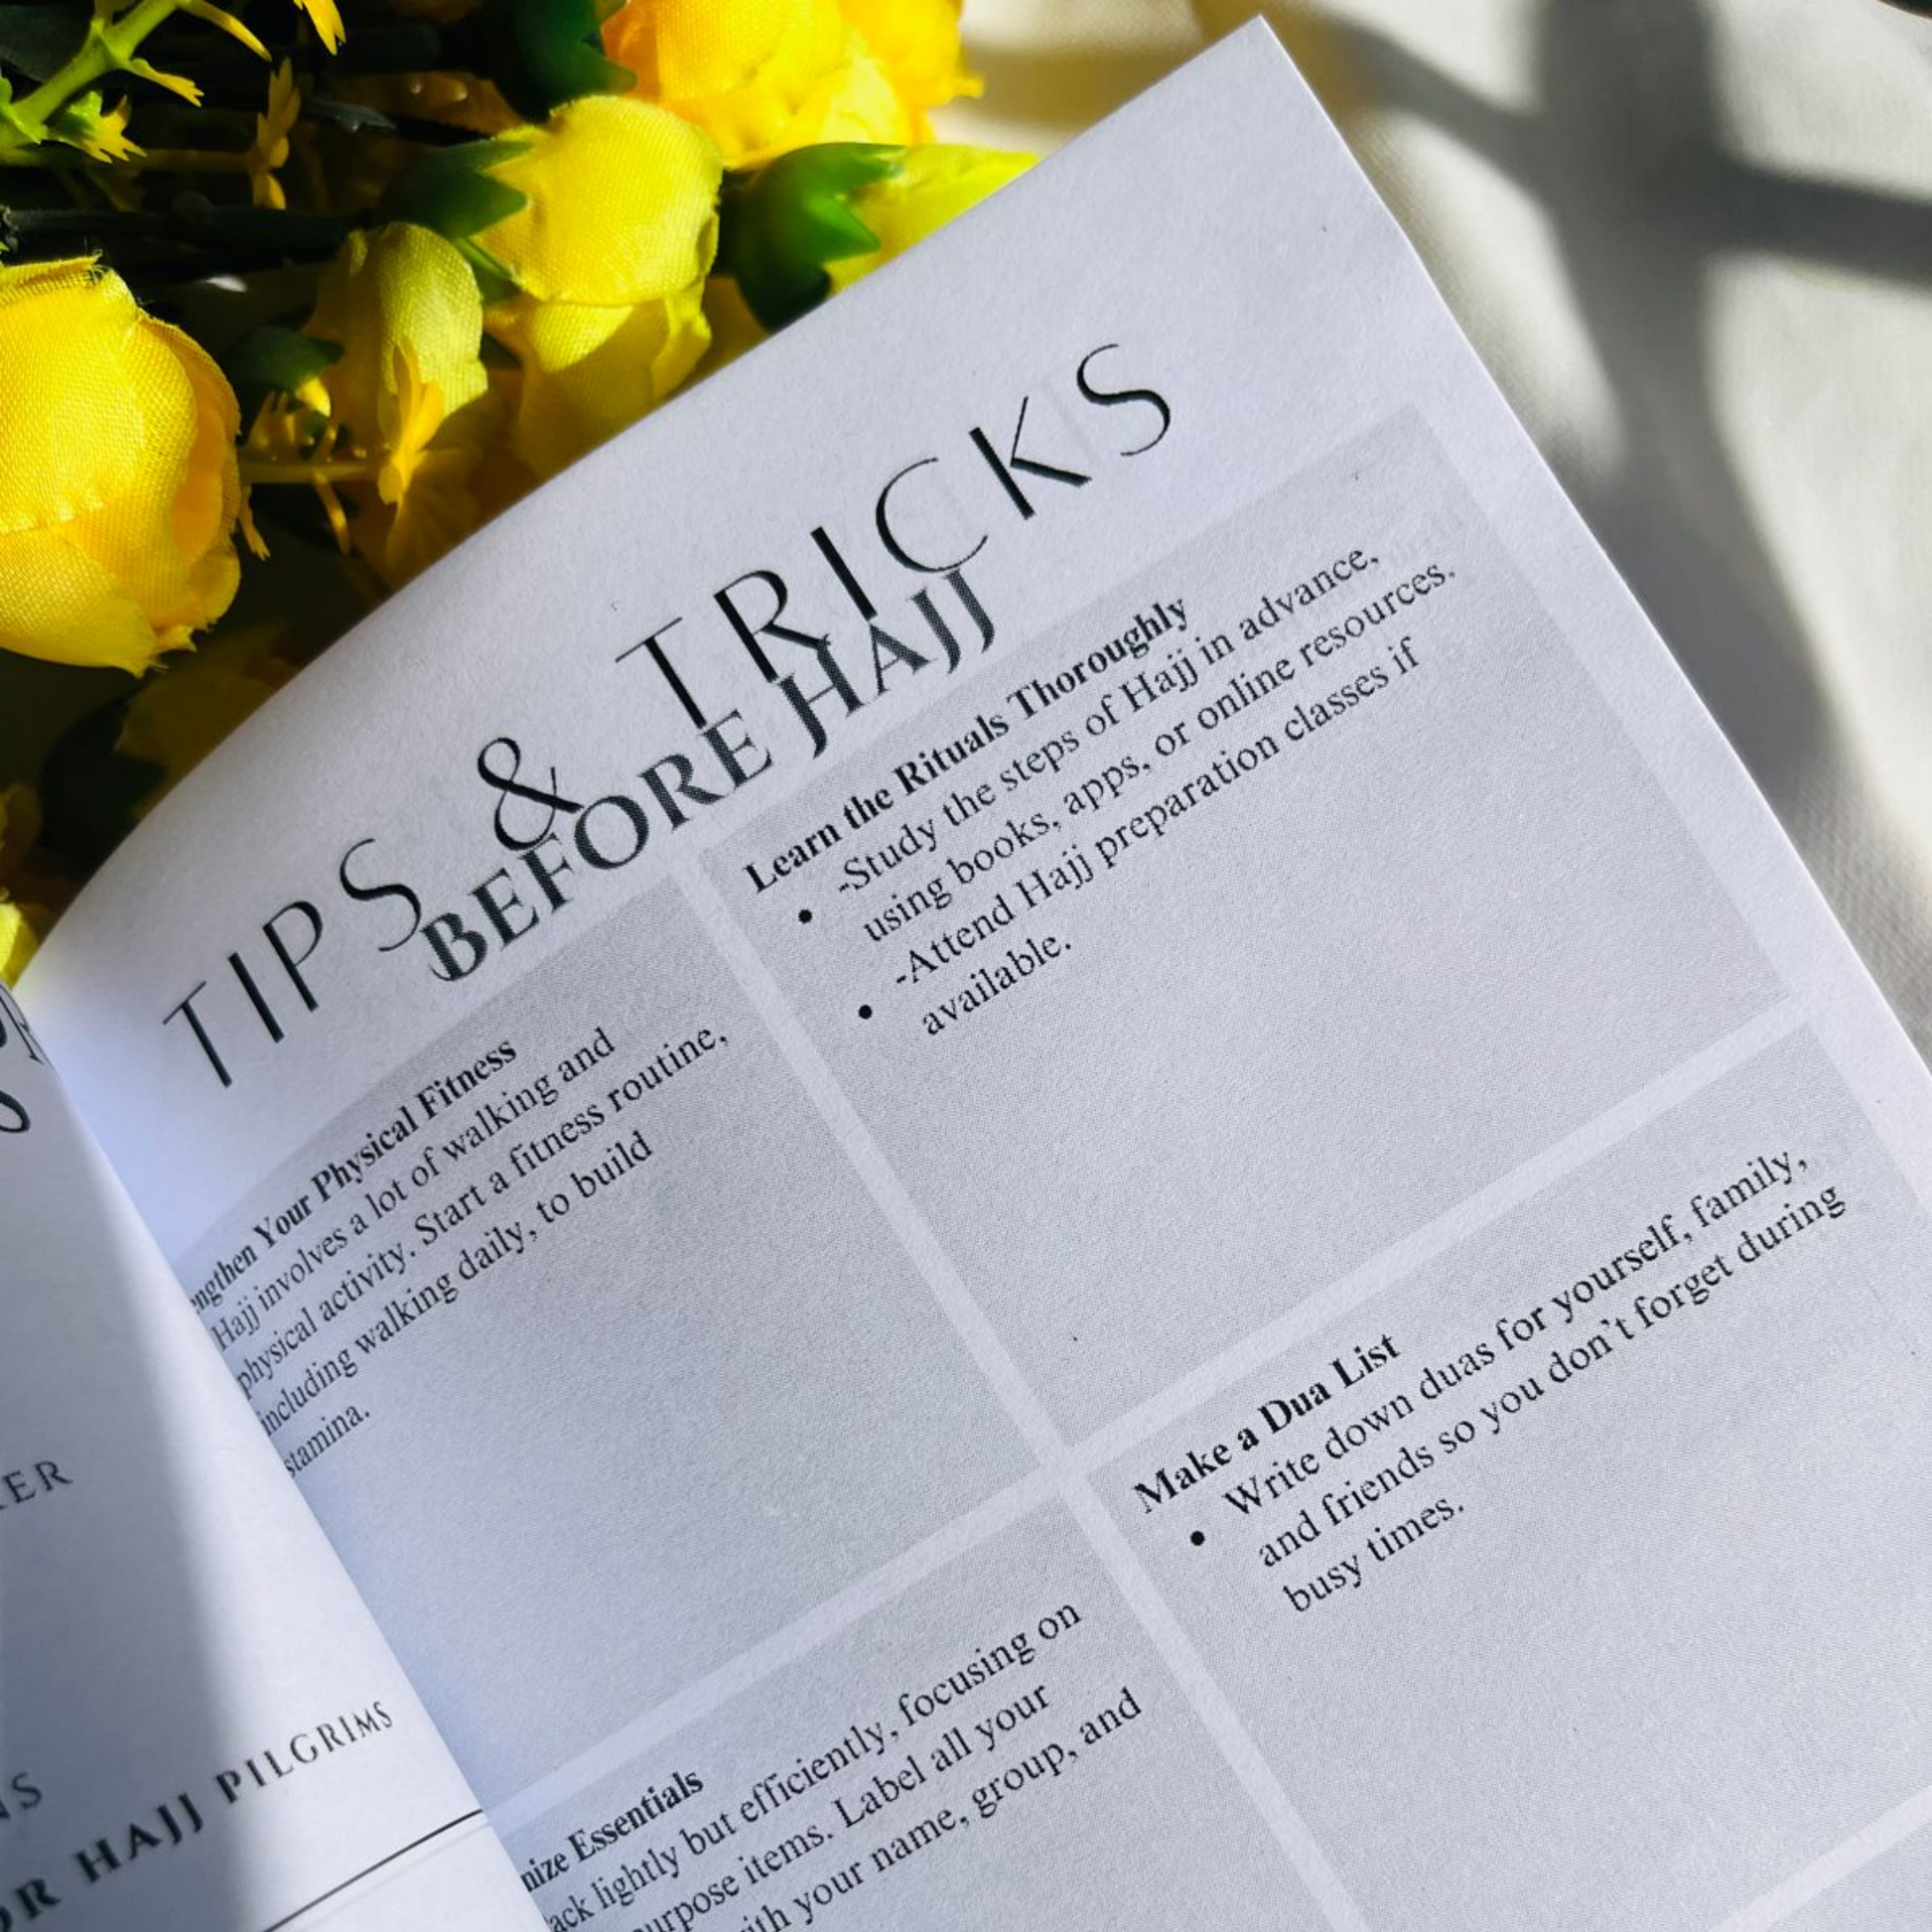 TIPS & TRICKS
BEFORE HAJJ
engthen Your Physical Fitness
Hajj involves a lot of walking and
physical activity. Start a fitness routine,
including walking daily, to build
stamina.
Learn the Rituals Thoroughly
• -Study the steps of Hajj in advance,
using books, apps, or online resources.
• -Attend Hajj preparation classes if
available.
nize Essentials
ack lightly but efficiently, focusing on
urpose items. Label all your
ith your name, group, and
Make a Dua List
• Write down duas for yourself, family,
and friends so you don't forget during
busy times.
ER
NS
OR HAJJ PILGRIMS